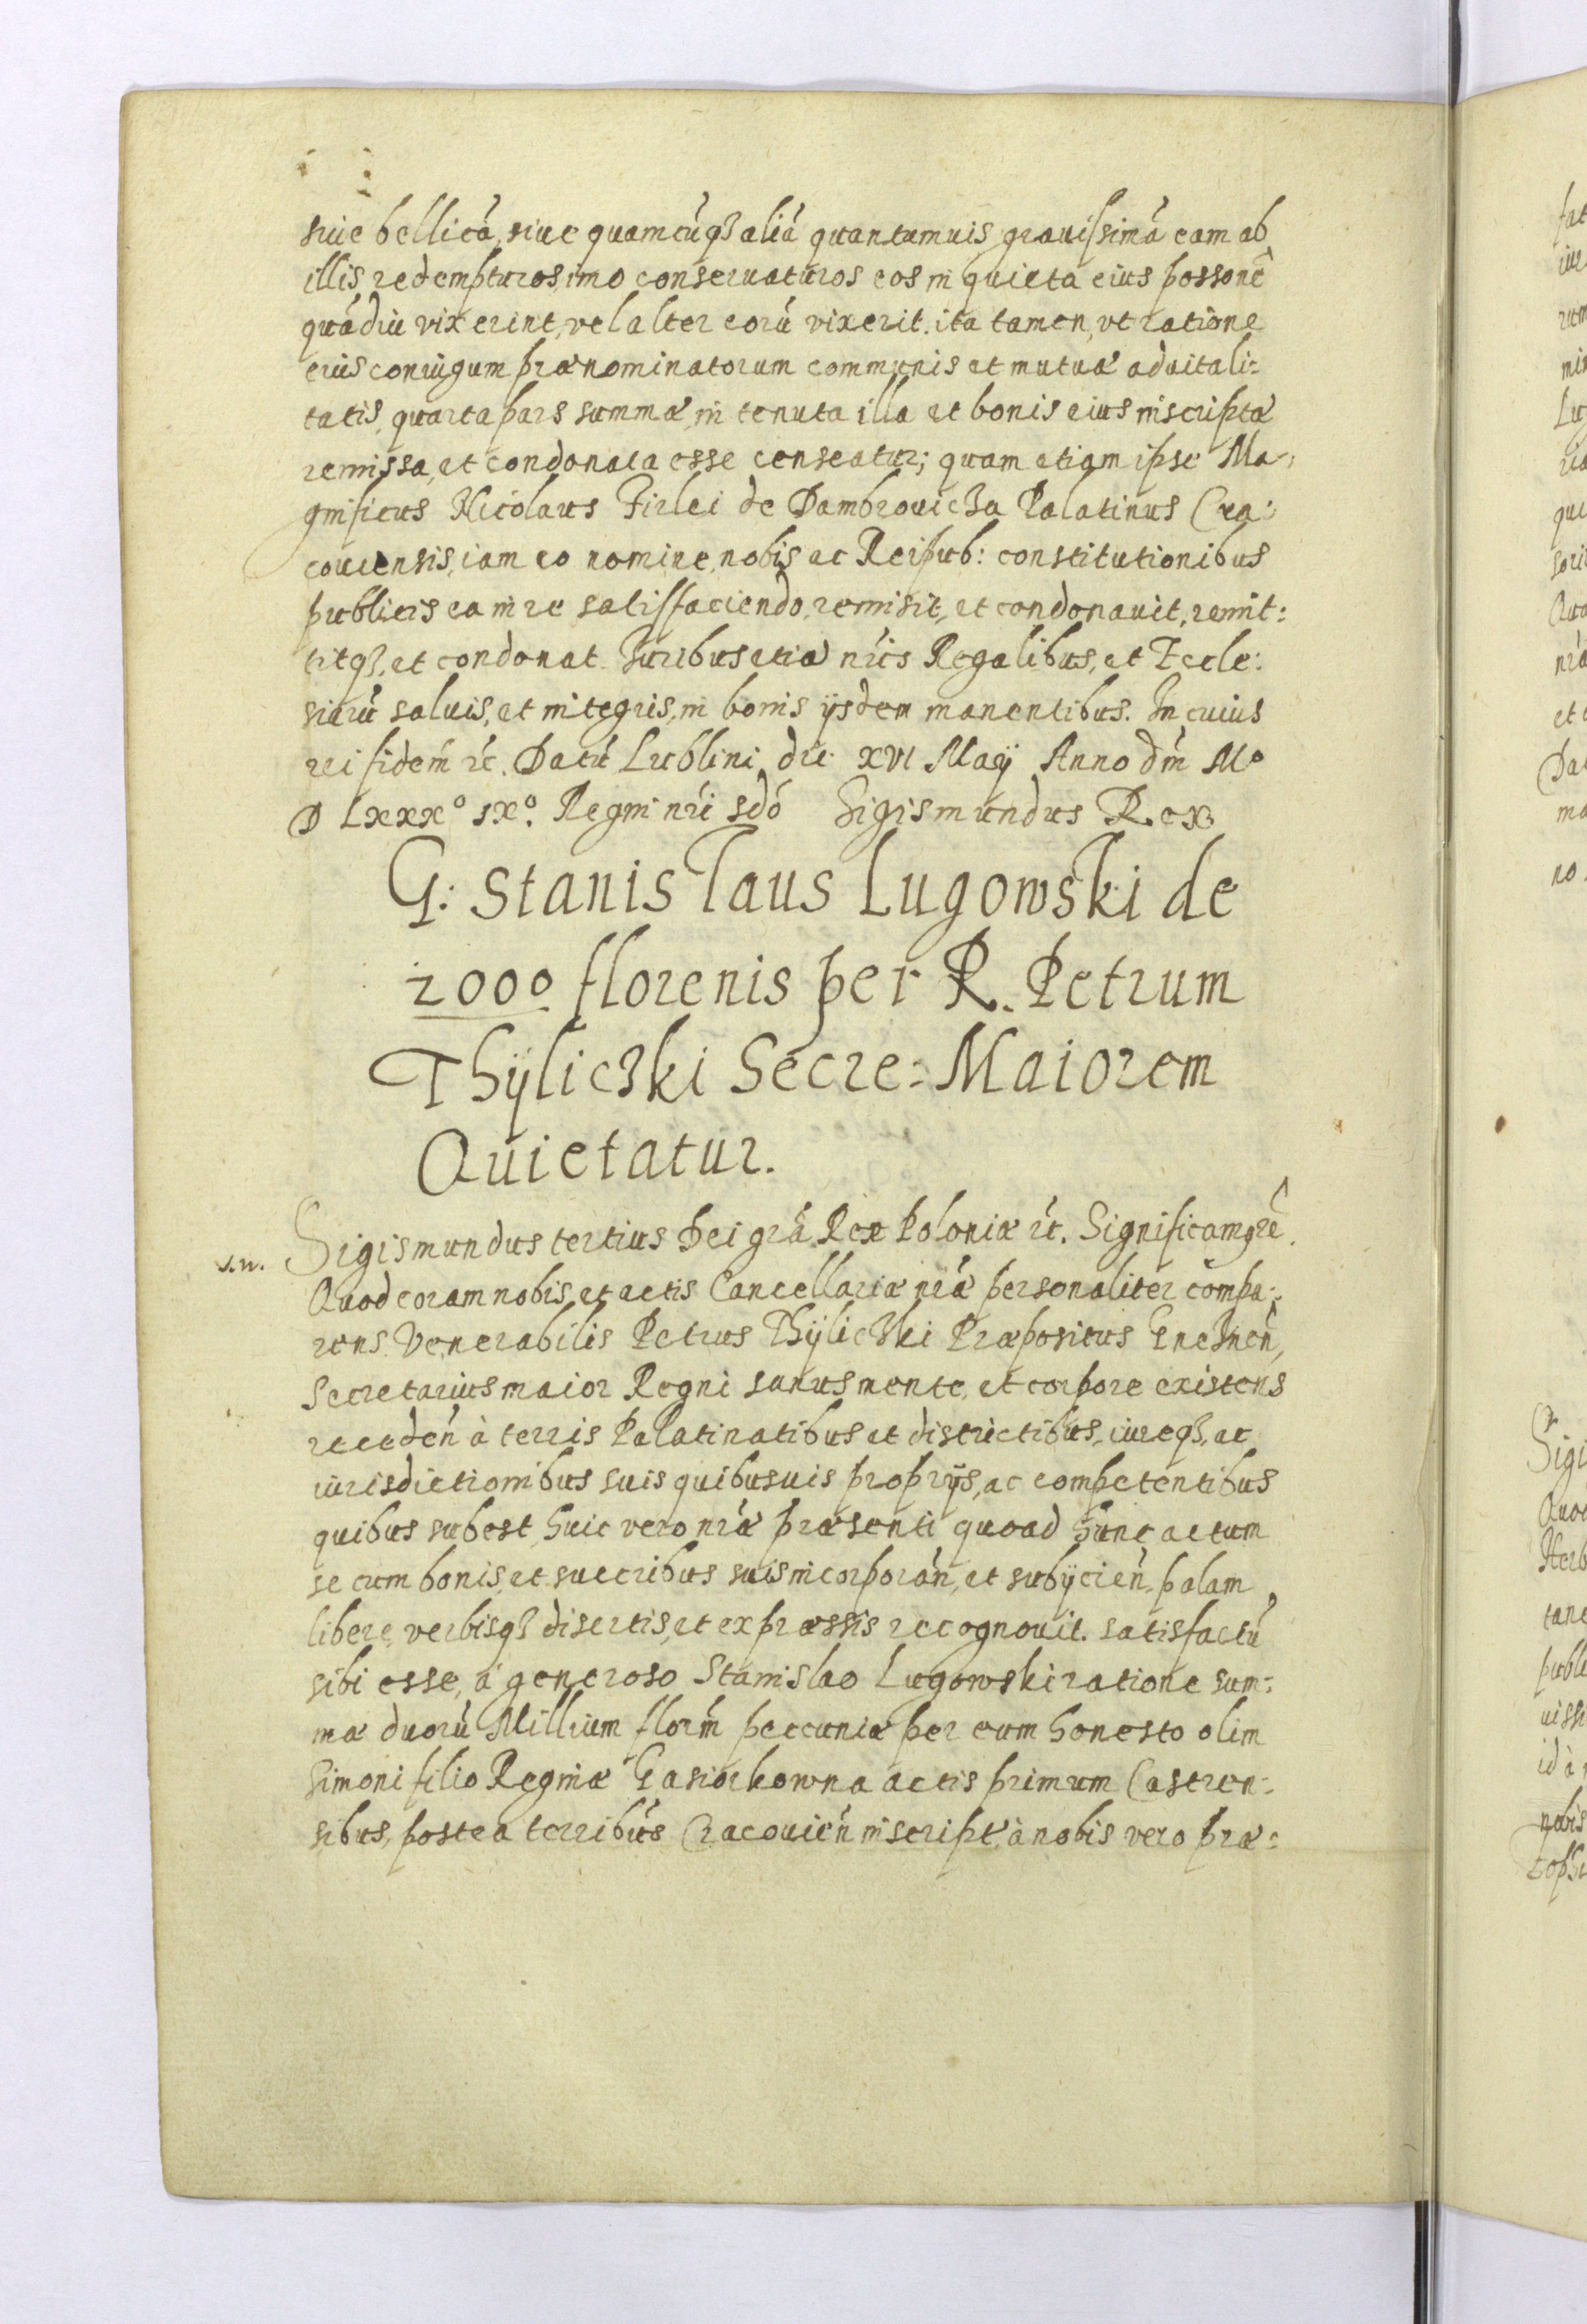 siue bellicá, siue quamcúqȝ aliá quantumuis grauissimá eam ab
illis redempturos, imo conseruaturos eos in quieta eius possoné
quádiu vixerint, vel alter eorú vixerit. ita tamen, vt ratione
eius coniugum prænominatorum communis et mutuæ aduitali:
tatis, quarta pars summæ, in tenuta illa et bonis eius inscriptæ
remissa, et condonata esse censeatur; quam etiam ipse Ma-
gnificus Nicolaus Firlei de Dambrouicza Palatinus Cra:
couiensis, iam eo nomine, nobis ac Reipub: constitutionibus
publicis ea in re satisfaciendo, remisit, et condonauit, remit:
titqȝ, et condonat. Iuribus etiá nris Regalibus, et Eccle:
siarú saluis, et integris, in bonis ijsdem manentibus. In cuius
rei fidem ec. Datú Lublini die XVI Maij Anno dni Mº
D LXXXº IXº. Regni nri sdó Sigismundus Rex.
G: Stanislaus Lugowski de
2000 florenis per R. Petrum
Thÿliczki Secre: Maiorem
Quietatur.
Sigismundus tertius Dei grá Rex Poloniæ ec. Significamqre.
s.n.
Quod coram nobis, et actis Cancellariæ nræ personaliter compa:
rens Venerabilis Petrus Thÿliczki Præpositus Gneznen,
Secretarius maior Regni sanus mente, et corpore existens
receden à terris Palatinatibus et districtibus, iureqȝ, ac
iurisdictionibus suis quibusuis proprijs, ac competentibus
quibus subest, huic vero nræ præsenti quoad hunc actum
se cum bonis, et succribus suis incorporán, et subijcien, palam
libere, verbisqȝ disertis, et expræssis recognouit. satisfactú
sibi esse, á generoso Stanislao Lugowski ratione sum:
mæ duorú Millium florm pecuniæ per eum honesto olim
Simoni filio Reginæ Gasiorkowna actis primum Castren:
sibus, postea terribús Cracouién inscript, à nobis vero præ: